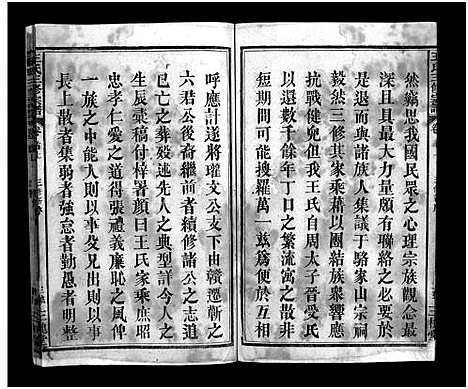 然竊思我國民眾之心理宗族觀念最
深且具最大力量頗有聯絡之必要於
是邀族人士集議于駱家山宗祠
毅然三修其家乘藉以團結族衆響應
抗戰健兒但我王氏自周太子晉受氏
以還數千餘年丁口之繁流寓之散非
短期間所能搜羅萬一茲爲便於
呼應計遂將瓘文公支下由贛遷蘄之
六君公後裔繼前者續修諸公之志道
已亡之葬歿述先人之典型詳今人之
生辰彙稿付梓署顔曰王氏家乘庶昭
忠孝仁愛之道得張禮義廉恥之風俾
一族之中能人則以事父兄出則以事
長上散者集弱者強怠者勤愚者明整